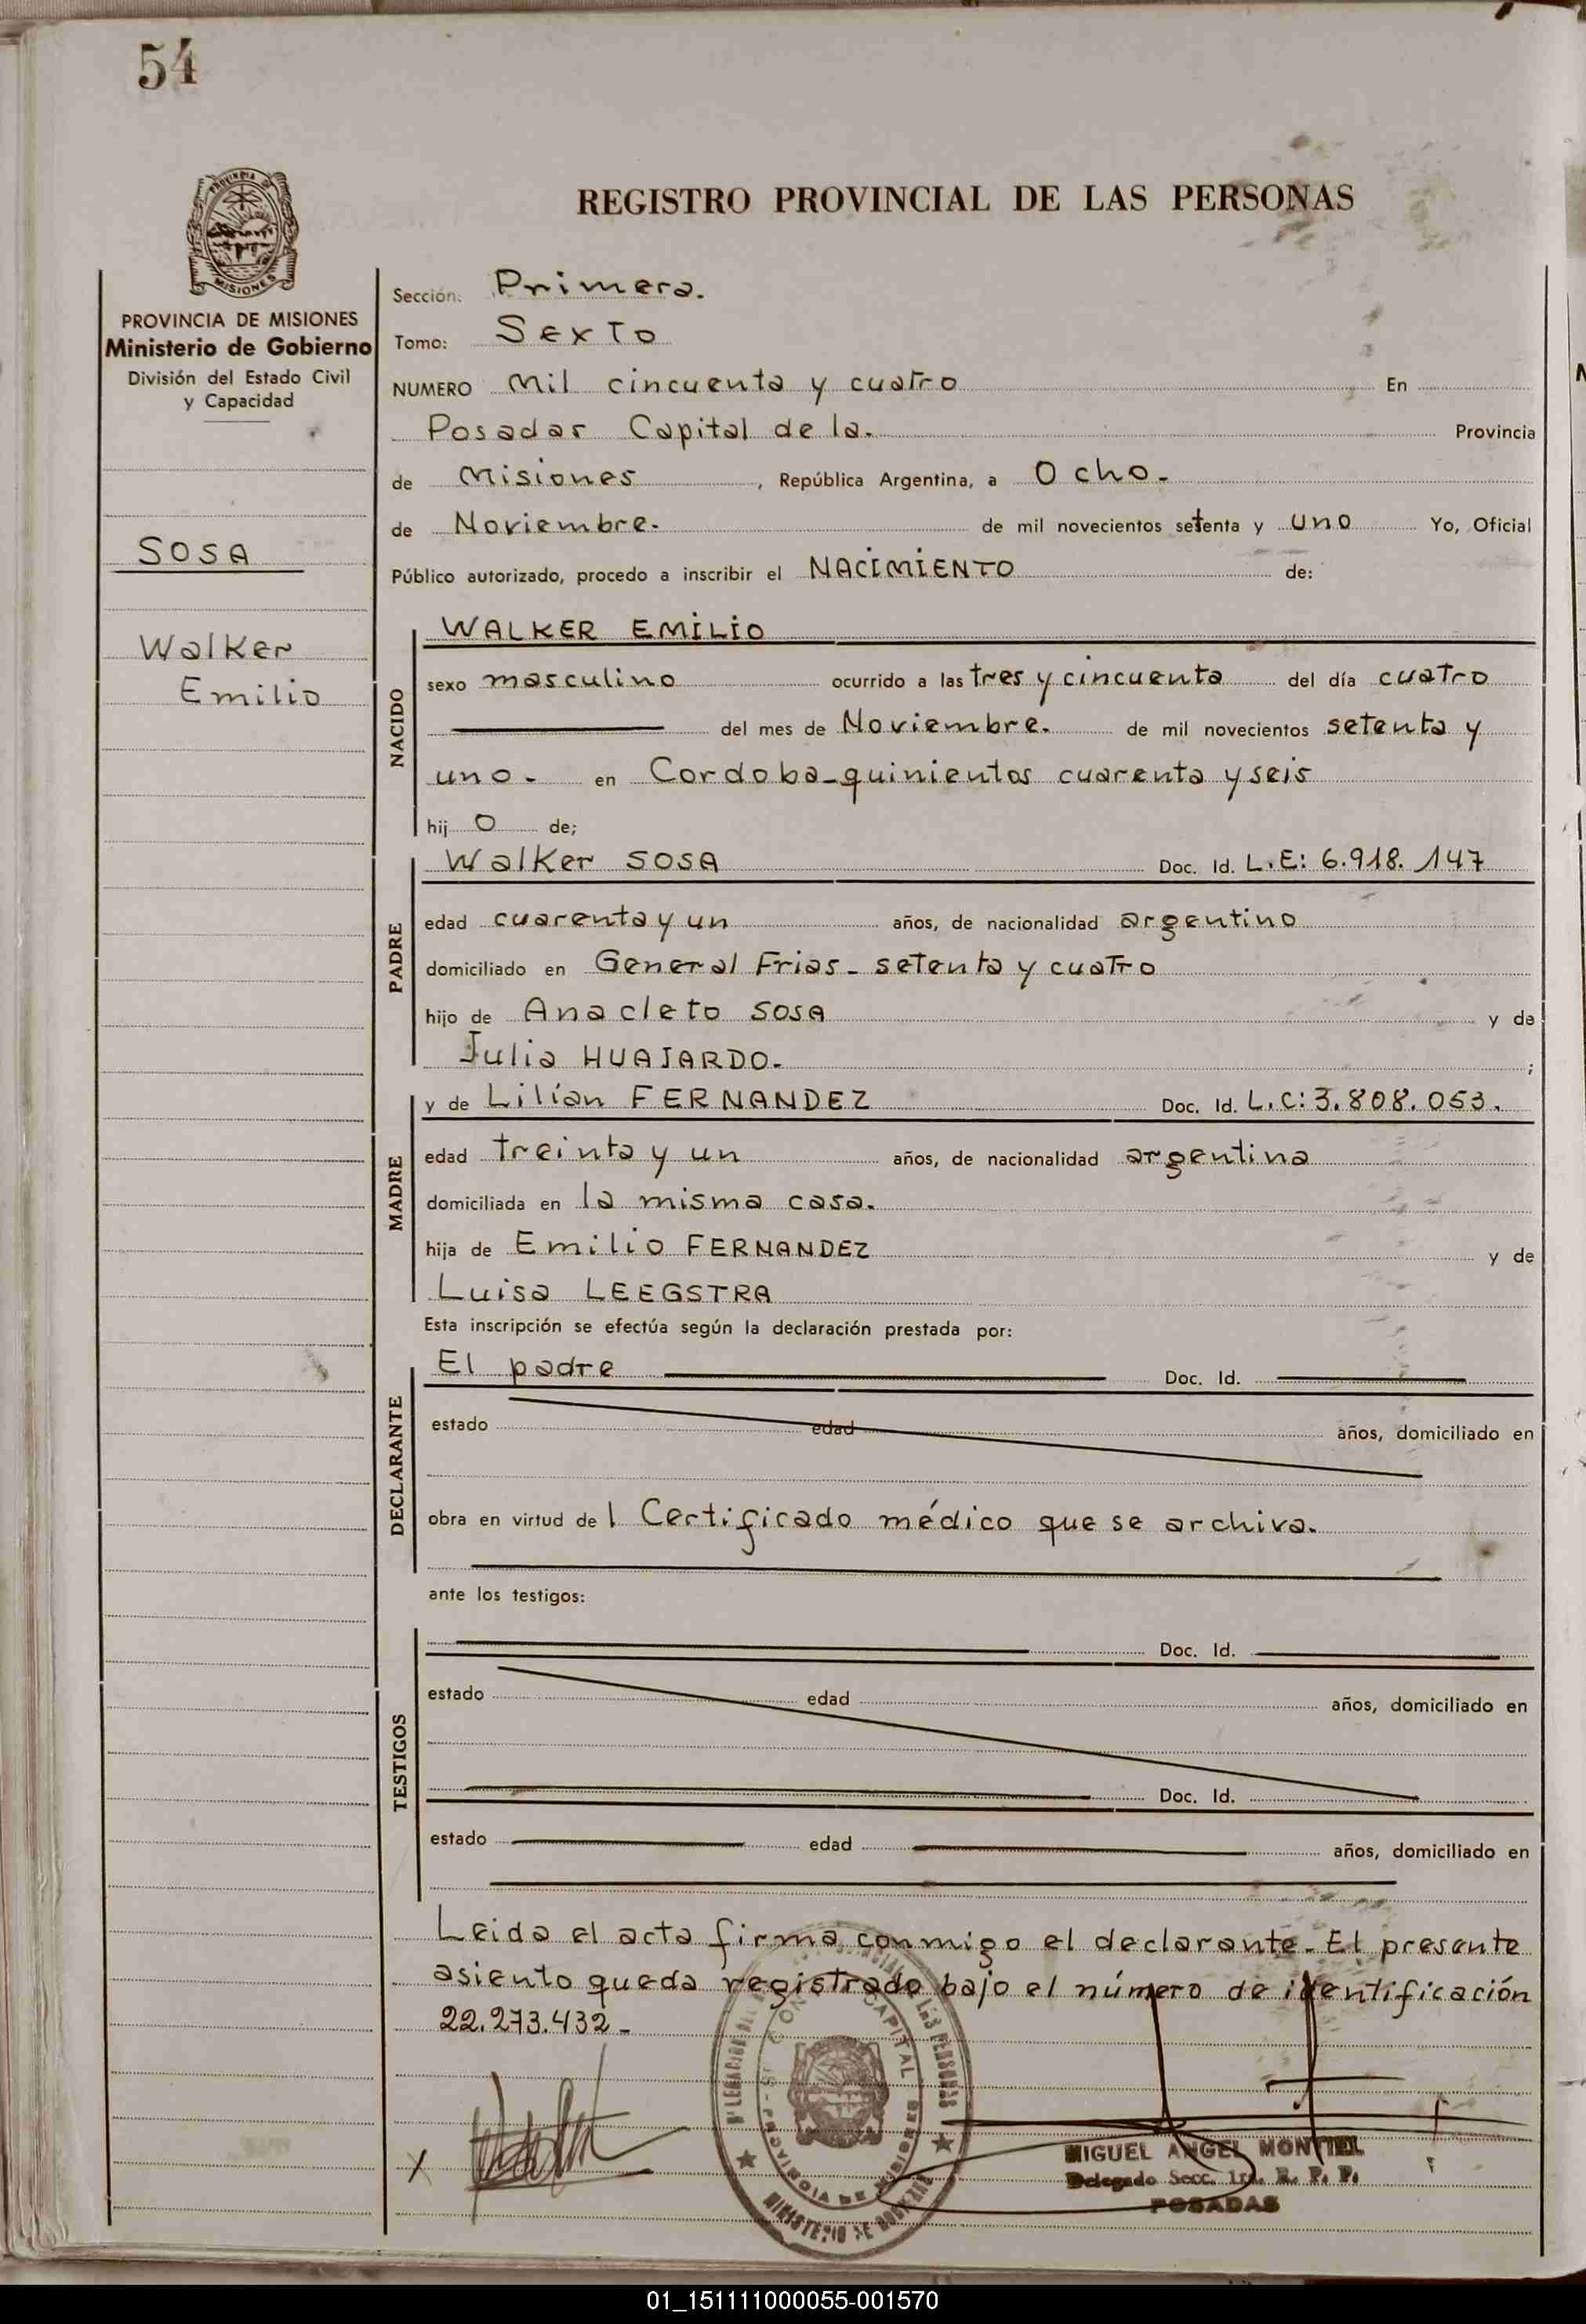 54
PROVINCIA DE MISIONES
MISIONES
Ministerio de Gobierno
División del Estado Civil
y Capacidad
SOSA
Walker
Emilio
REGISTRO PROVINCIAL DE LAS PERSONAS
Sección: Primera.
Tomo: Sexto
NUMERO Mil cincuenta y cuatro En
Posadas Capital de la. Provincia
de Misiones, República Argentina, a Ocho.
de Noviembre. de mil novecientos setenta y uno Yo, Oficial
Público autorizado, procedo a inscribir el NACIMIENTO de:
NACIDO
WALKER EMILIO
sexo masculino ocurrido a las tres y cincuenta del día cuatro
del mes de Noviembre. de mil novecientos setenta y
uno. en Cordoba-quinientos cuarenta y seis
hij o de;
PADRE
Walker SOSA Doc. Id. L.E: 6.918.147
edad cuarenta y un años, de nacionalidad argentino
domiciliado en General Frias - setenta y cuatro
hijo de Anacleto SOSA y de
Julia HUAJARDO. ;
MADRE
y de Lilían FERNANDEZ Doc. Id. L.C: 3.808.053.
edad treinta y un años, de nacionalidad argentina
domiciliada en la misma casa.
hija de Emilio FERNANDEZ y de
Luisa LEEGSTRA
Esta inscripción se efectúa según la declaración prestada por:
DECLARANTE
El padre Doc. Id.
estado edad años, domiciliado en
obra en virtud del Certificado médico que se archiva.
ante los testigos:
TESTIGOS
Doc. Id.
estado edad años, domiciliado en
Doc. Id.
estado edad años, domiciliado en
Leida el acta firma conmigo el declarante. El presente
asiento queda registrado bajo el número de identificación
22.273.432-
CAPITAL
PROVINCIA DE MISIONES
MINISTERIO DE GOBIERNO
LAS PERSONAS
X
MIGUEL ANGEL MONTIEL
Delegado Secc. 1ra. R. P. P.
POSADAS
01_151111000055-001570